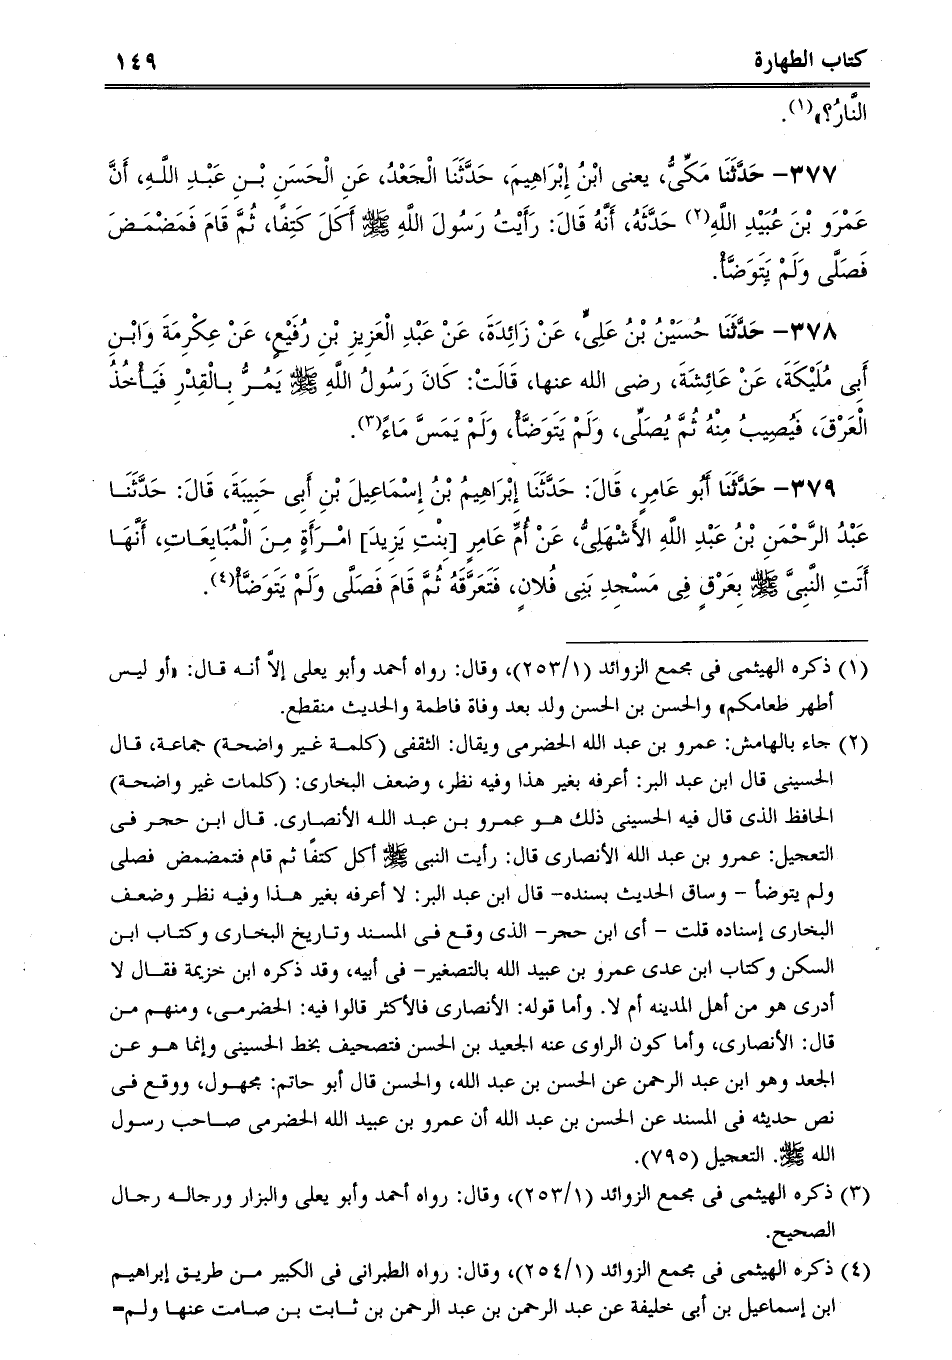 كتاب الطهارة ١٤٩
النَّارُ؟»(١).
٣٧٧- حَدَّثَنَا مَكِّىُّ، يعنى ابْنُ إِبْرَاهِيمَ، حَدَّثَنَا الْجَعْدُ، عَنِ الْحَسَنِ بْنِ عَبْدِ اللَّهِ، أَنَّ
عَمْرَو بْنَ عُبَيْدِ اللَّهِ(٢) حَدَّثَهُ، أَنَّهُ قَالَ: رَأَيْتُ رَسُولَ اللَّهِ ﷺ أَكَلَ كَتِفًا، ثُمَّ قَامَ فَمَضْمَضَ
فَصَلَّى وَلَمْ يَتَوَضَّأْ.
٣٧٨- حَدَّثَنَا حُسَيْنُ بْنُ عَلِىٍّ، عَنْ زَائِدَةَ، عَنْ عَبْدِ الْعَزِيزِ بْنِ رُفَيْعٍ، عَنْ عِكْرِمَةَ وَابْنِ
أَبِى مُلَيْكَةَ، عَنْ عَائِشَةَ، رضى الله عنها، قَالَتْ: كَانَ رَسُولُ اللَّهِ ﷺ يَمُرُّ بِالْقِدْرِ فَيَأْخُذُ
الْعَرْقَ، فَيُصِيبُ مِنْهُ ثُمَّ يُصَلِّى، وَلَمْ يَتَوَضَّأْ، وَلَمْ يَمَسَّ مَاءً(٣).
٣٧٩- حَدَّثَنَا أَبُو عَامِرٍ، قَالَ: حَدَّثَنَا إِبْرَاهِيمُ بْنُ إِسْمَاعِيلَ بْنِ أَبِى حَبِيبَةَ، قَالَ: حَدَّثَنَا
عَبْدُ الرَّحْمَنِ بْنُ عَبْدِ اللَّهِ الأَشْهَلِىُّ، عَنْ أُمِّ عَامِرٍ [بِنْتِ يَزِيدَ] امْرَأَةٍ مِنَ الْمُبَايِعَاتِ، أَنَّهَا
أَتَتِ النَّبِىَّ ﷺ بِعَرْقٍ فِى مَسْجِدِ بَنِى فُلَانٍ، فَتَعَرَّقَهُ ثُمَّ قَامَ فَصَلَّى وَلَمْ يَتَوَضَّأْ(٤).
(١) ذكره الهيثمى فى مجمع الزوائد (٢٥٣/١)، وقال: رواه أحمد وأبو يعلى إلاَّ أنه قال: «أو ليس
أطهر طعامكم» والحسن بن الحسن ولد بعد وفاة فاطمة والحديث منقطع.
(٢) جاء بالهامش: عمرو بن عبد الله الحضرمى ويقال: الثقفى (كلمة غير واضحة) جماعة، قال
الحسينى قال ابن عبد البر: أعرفه بغير هذا وفيه نظر، وضعف البخارى: (كلمات غير واضحة)
الحافظ الذى قال فيه الحسينى ذلك هو عمرو بن عبد الله الأنصارى. قال ابن حجر فى
التعجيل: عمرو بن عبد الله الأنصارى قال: رأيت النبى ﷺ أكل كتفًا ثم قام فتمضمض فصلى
ولم يتوضأ - وساق الحديث بسنده- قال ابن عبد البر: لا أعرفه بغير هذا وفيه نظر وضعف
البخارى إسناده قلت - أى ابن حجر- الذى وقع فى المسند وتاريخ البخارى وكتاب ابن
السكن وكتاب ابن عدى عمرو بن عبيد الله بالتصغير- فى أبيه، وقد ذكره ابن خزيمة فقال لا
أدرى هو من أهل المدينه أم لا. وأما قوله: الأنصارى فالأكثر قالوا فيه: الحضرمى، ومنهم من
قال: الأنصارى، وأما كون الراوى عنه الجعيد بن الحسن فتصحيف بخط الحسينى وإنما هو عن
الجعد وهو ابن عبد الرحمن عن الحسن بن عبد الله، والحسن قال أبو حاتم: مجهول، ووقع فى
نص حديثه فى المسند عن الحسن بن عبد الله أن عمرو بن عبيد الله الحضرمى صاحب رسول
الله ﷺ. التعجيل (٧٩٥).
(٣) ذكره الهيثمى فى مجمع الزوائد (٢٥٣/١)، وقال: رواه أحمد وأبو يعلى والبزار ورجاله رجال
الصحيح.
(٤) ذكره الهيثمى فى مجمع الزوائد (٢٥٤/١)، وقال: رواه الطبرانى فى الكبير من طريق إبراهيم
ابن إسماعيل بن أبى خليفة عن عبد الرحمن بن عبد الرحمن بن ثابت بن صامت عنها ولم=